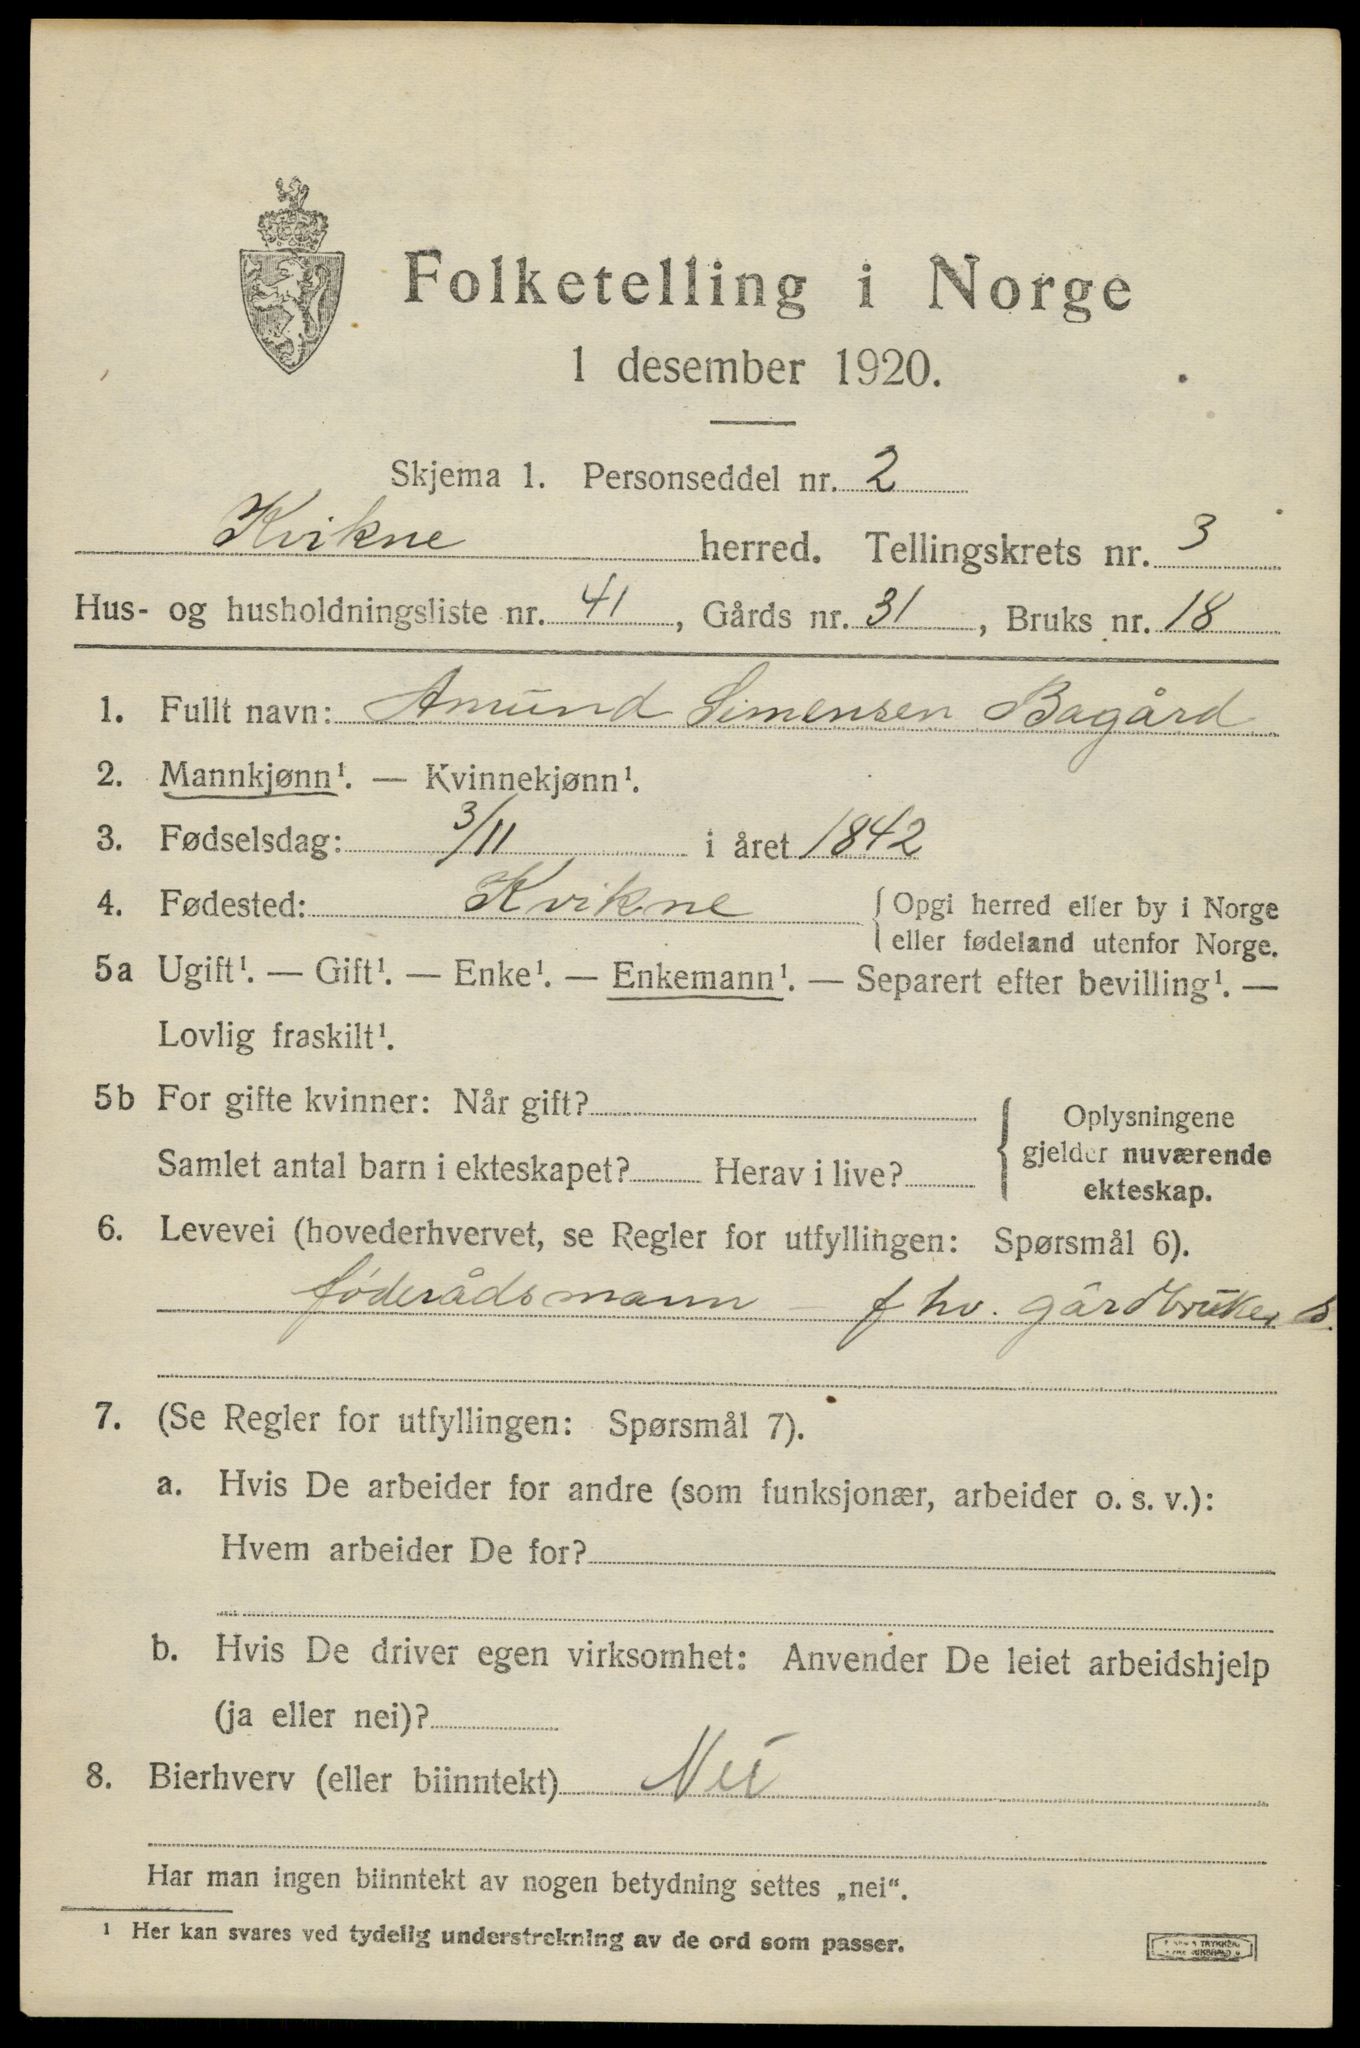 Folketelling i Norge
1 desember 1920.
Skjema 1. Personseddel nr. 2
Kvikne herred. Tellingskrets nr. 3
Hus- og husholdningsliste nr. 41, Gårds nr. 31, Bruks nr. 18
1. Fullt navn: Amund Simensen Bagård
2. Mannkjønn¹. — Kvinnekjønn¹.
3. Fødselsdag: 3/11 i året 1842
4. Fødested: Kvikne { Opgi herred eller by i Norge
eller fødeland utenfor Norge.
5a Ugift¹. — Gift¹. — Enke¹. — Enkemann¹. — Separert efter bevilling¹. —
Lovlig fraskilt¹.
5b For gifte kvinner: Når gift?
Samlet antal barn i ekteskapet? Herav i live?
{ Oplysningene
gjelder nuværende
ekteskap.
6. Levevei (hovederhvervet, se Regler for utfyllingen: Spørsmål 6).
føderådsmann – f hv. gårdbruker s.
7. (Se Regler for utfyllingen: Spørsmål 7).
a. Hvis De arbeider for andre (som funksjonær, arbeider o. s. v.):
Hvem arbeider De for?
b. Hvis De driver egen virksomhet: Anvender De leiet arbeidshjelp
(ja eller nei)?
8. Bierhverv (eller biinntekt) Nei
Har man ingen biinntekt av nogen betydning settes „nei“.
¹ Her kan svares ved tydelig understrekning av de ord som passer.